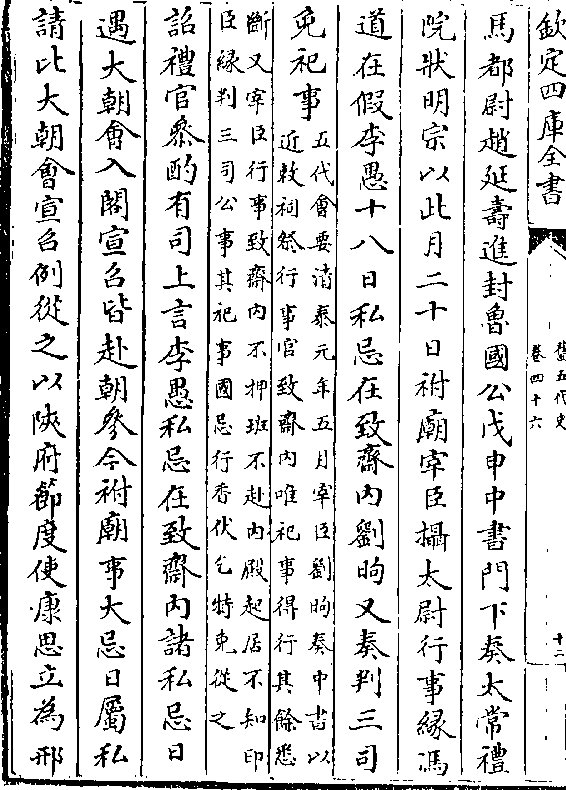 欽定四庫全書
舊五代史
卷四十六
十二
馬都尉趙延壽進封魯國公戊申中書門下奏太常禮
院狀明宗以此月二十日祔廟宰臣攝太尉行事緣馮
道在假李愚十八日私忌在致齋內劉昫又奏判三司
免祀事
五代會要清泰元年五月宰臣劉昫奏中書以
近敕祠祭行事官致齋內唯祀事得行其餘悉
斷又宰臣行事致齋內不押班不赴內殿起居不知印
臣緣判三司公事其祀事國忌行香伏乞特免從之
詔禮官參酌有司上言李愚私忌在致齋內諸私忌日
遇大朝會入閣宣召皆赴朝參今祔廟事大忌日屬私
請比大朝會宣召例從之以陜府節度使康思立為邢